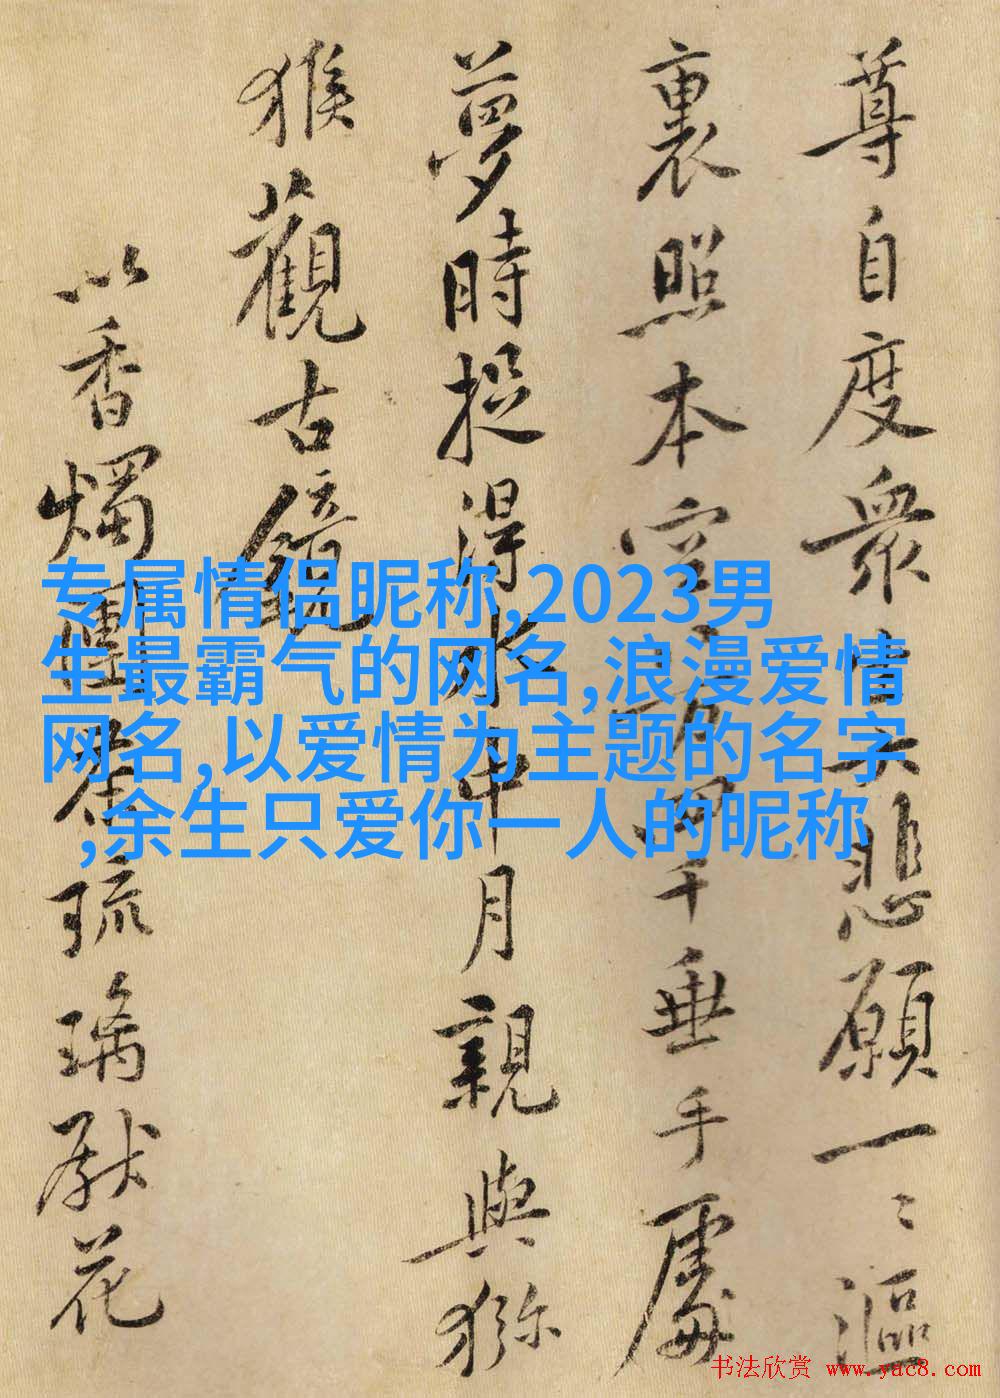 专属情侣昵称,2023男
生最霸气的网名,浪漫爱情
网名,以爱情为主题的名字
,余生只爱你一人的昵称
尊自度衆生大悲願一〻漚
裏照本空千垂手處
夢時捉得水中月親與猕
猴觀古鏡
以香燭團茶琉璃獻花
书法欣赏 www.yac8.com